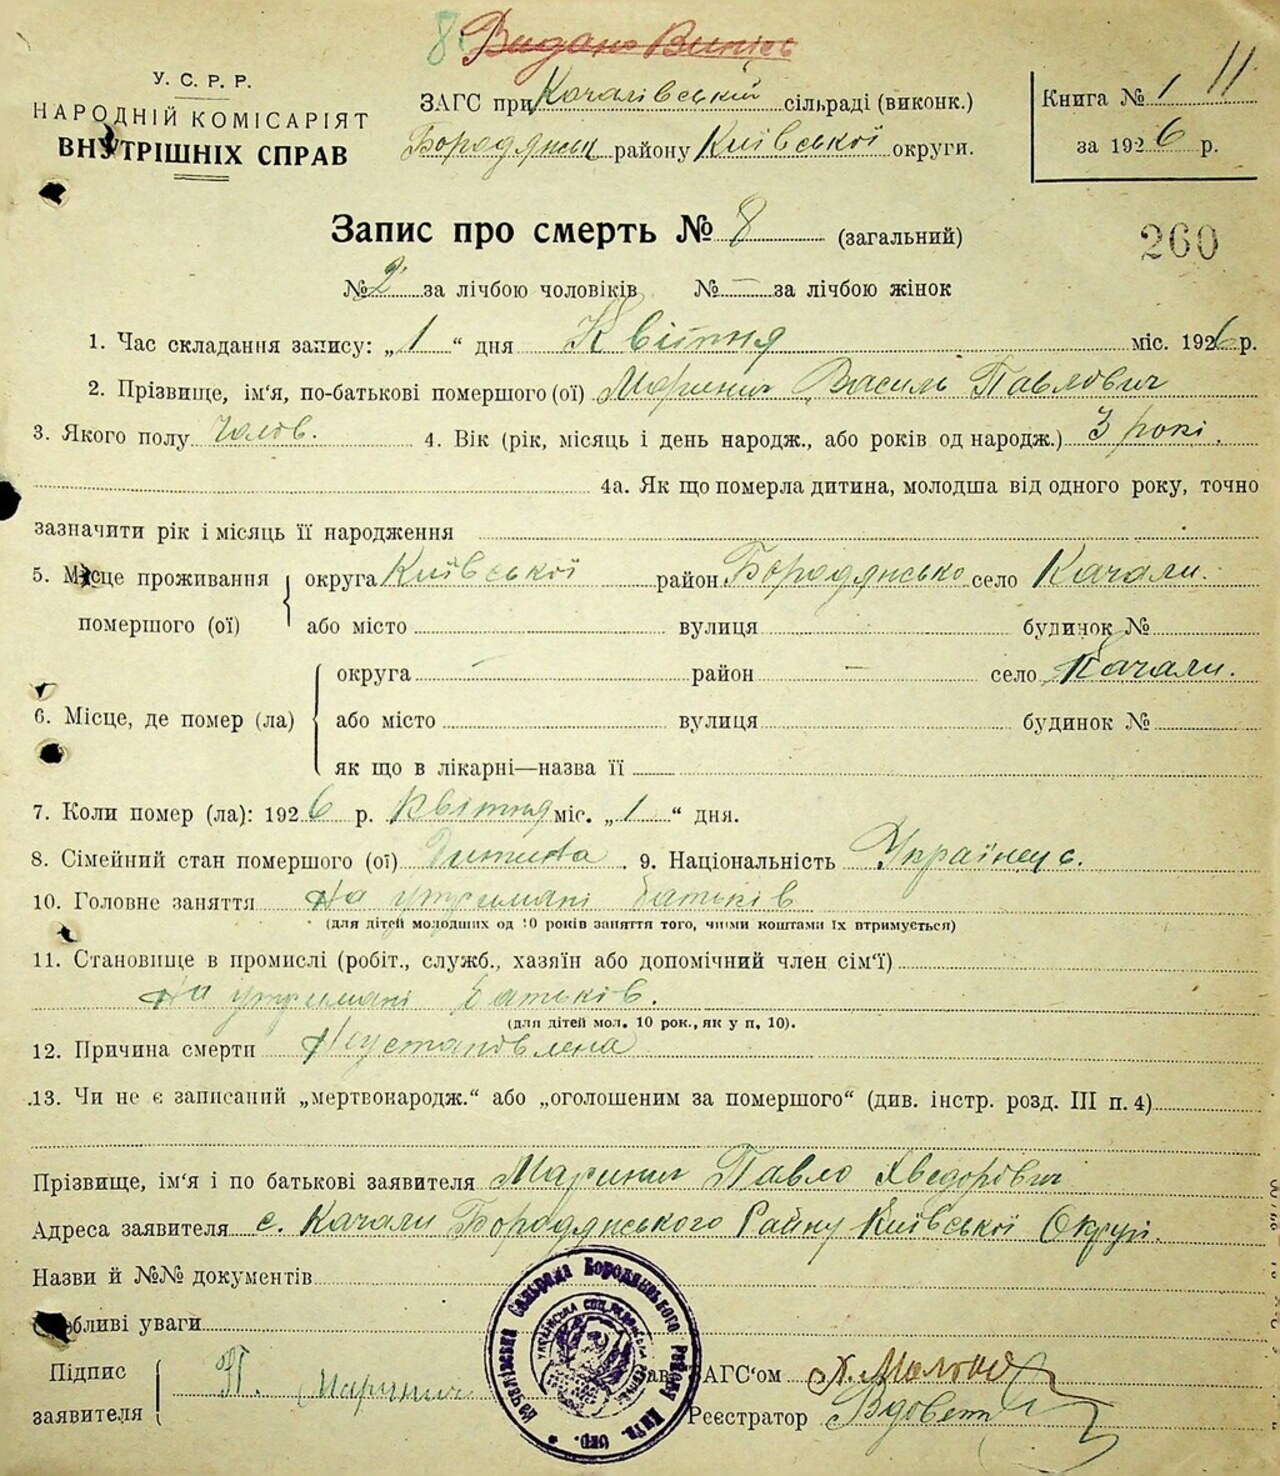 8 Видано Випись
У. С. Р. Р.
НАРОДНІЙ КОМІСАРІЯТ
ВНУТРІШНІХ СПРАВ
ЗАГС при Качалівській сільраді (виконк.)
Бородянськ району Київської округи.
Книга № 1 11
за 1926 р.
Запис про смерть № 8 (загальний)
260
№ 2 за лічбою чоловіків № — за лічбою жінок
1. Час складання запису: „1“ дня Квітня міс. 1926 р.
2. Прізвище, ім'я, по-батькові помершого (ої) Маринич Василь Павлович
3. Якого полу Чолов. 4. Вік (рік, місяць і день народж., або років од народж.) 3 рокі.
4а. Як що померла дитина, молодша від одного року, точно
зазначити рік і місяць її народження
5. Місце проживання помершого (ої) округа Київської район Бородянсько село Качали.
або місто вулиця будинок №
6. Місце, де помер (ла) округа — район — село Качали.
або місто вулиця будинок №
як що в лікарні—назва її
7. Коли помер (ла): 1926 р. Квітня міс. „1“ дня.
8. Сімейний стан помершого (ої) Дитина. 9. Національність Українець.
10. Головне заняття На утримані батьків
(для дітей молодших од 10 років заняття того, чиїми коштами їх втримується)
11. Становище в промислі (робіт., служб., хазяїн або допомічний член сім'ї)
На утримані батьків.
(для дітей мол. 10 рок., як у п. 10).
12. Причина смерти Неустановлена
13. Чи не є записаний „мертвонародж.“ або „оголошеним за помершого“ (див. інстр. розд. III п. 4)
Прізвище, ім'я і по батькові заявителя Маринич Павло Хведорович
Адреса заявителя с. Качали Бородянського Райну Київської Округі.
Назви й №№ документів
Особливі уваги
Підпис заявителя П. Маринич
Зав. ЗАГС'ом
Реєстратор Вдовет
Качалівська Сільрада Бородянського Району Київ. окр.